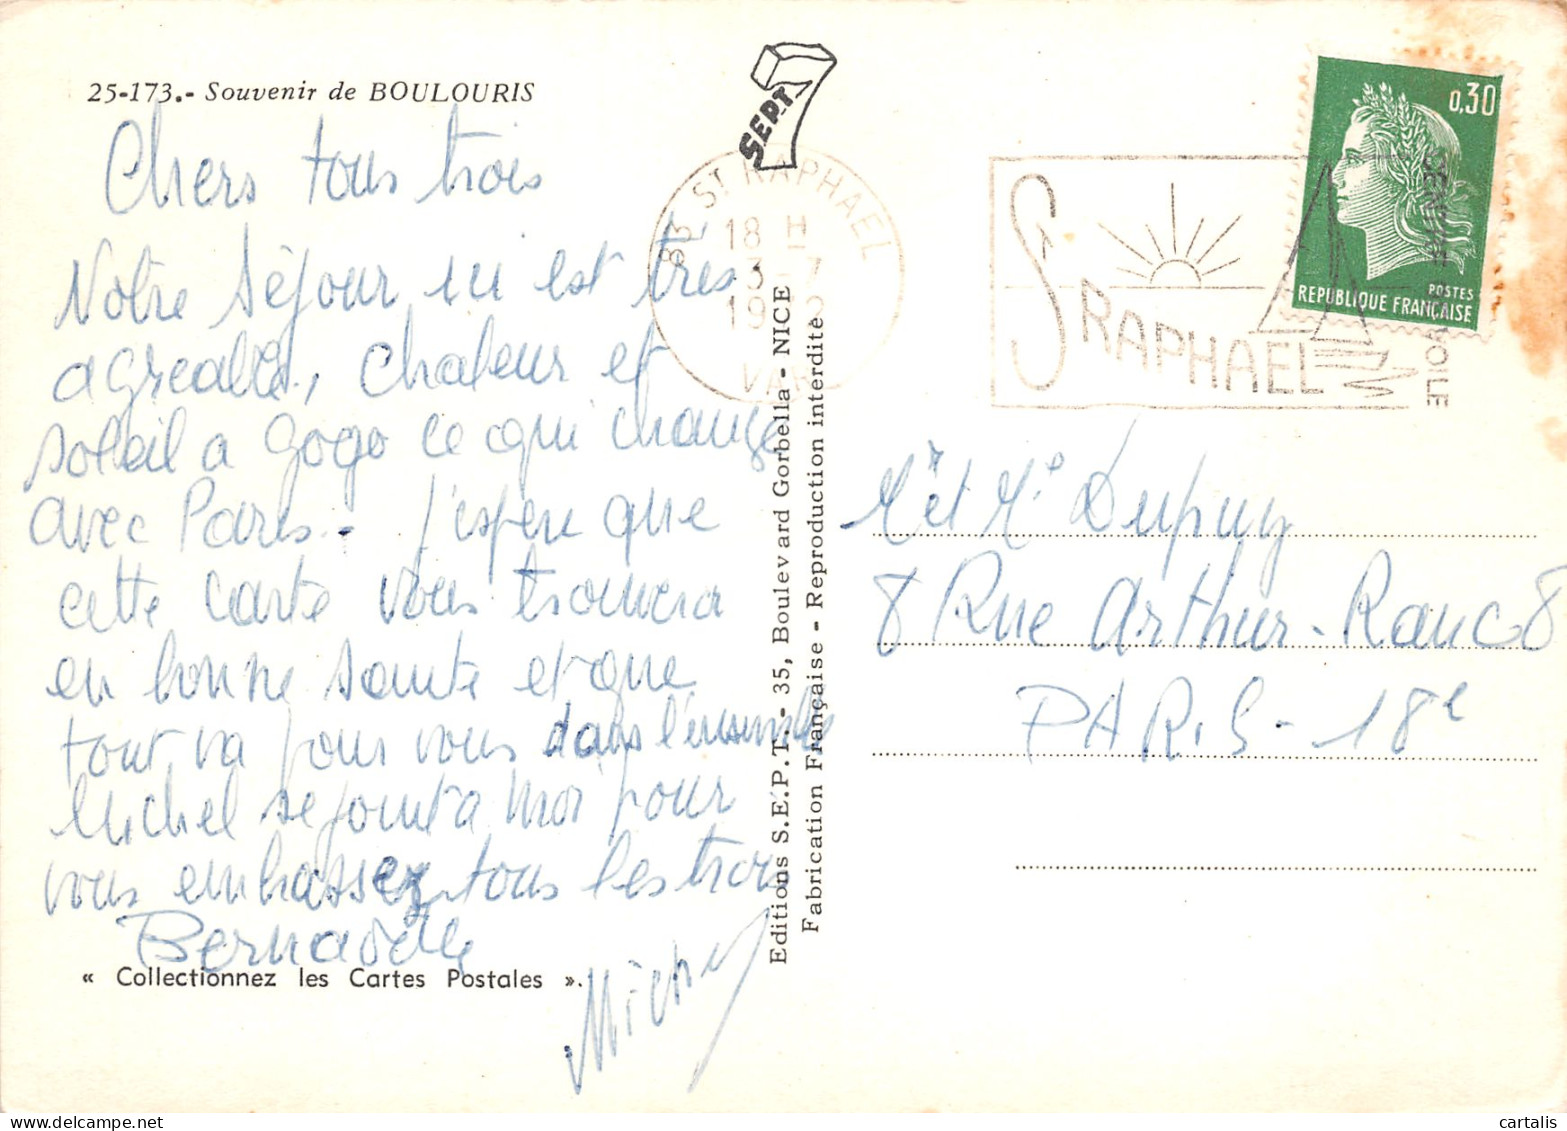 25-173.- Souvenir de BOULOURIS
Chers tous trois
Notre séjour ici est très
agréable, chaleur et
soleil a gogo ce qui change
avec Paris - j'espère que
cette carte vous trouvera
en bonne sante et que
tout va pour vous dans l'ensemble
Michel se joint a moi pour
vous embrasser tous les trois
Bernadette
Michel
« Collectionnez les Cartes Postales ».
SEPT 7
83 ST RAPHAEL
18 H
3 - 7
19 2
VAR
Editions S.E.P.T. - 35, Boulevard Gorbella - NICE
Fabrication Française - Reproduction interdite
ST RAPHAEL
0,30
POSTES
REPUBLIQUE FRANÇAISE
Mr et Me Dupuy
8 Rue Arthur-Ranc 8
PARIS - 18e